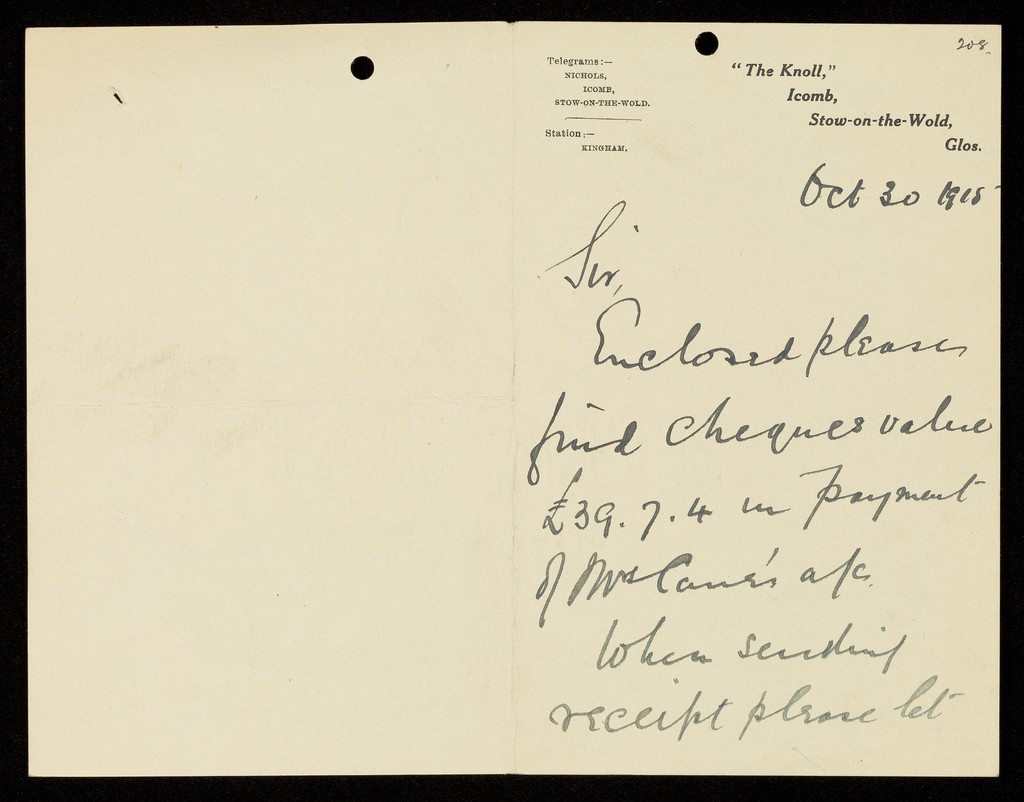 208
Telegrams:—
NICHOLS,
ICOMB,
STOW-ON-THE-WOLD.
Station:—
KINGHAM.
"The Knoll,"
Icomb,
Stow-on-the-Wold,
Glos.
Oct 30 1915
Sir,
Enclosed please
find cheques value
£39.7.4 in payment
of Mrs Cane's a/c.
When sending
receipt please let